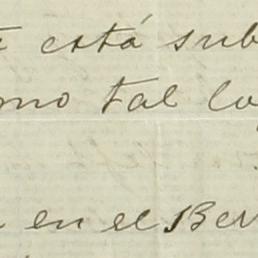 está sub
mo tal lo
en en el Ber